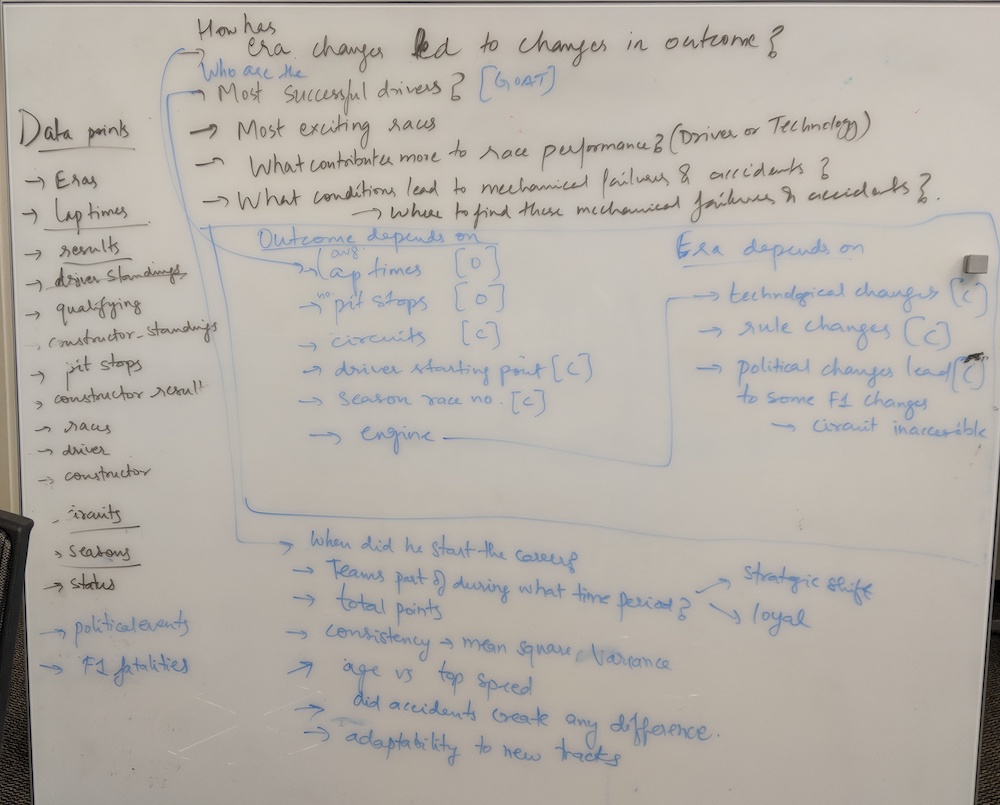 How has
era changes led to changes in outcome?
Who are the
→ Most successful drivers? [GOAT]
→ Most exciting races
→ What contributes more to race performance? (Driver or Technology)
→ What conditions lead to mechanical failures & accidents?
→ Where to find these mechanical failures & accidents?
Data points
→ Eras
→ Lap times
→ results
→ driver standings
→ qualifying
constructor_standings
→ pit stops
→ constructor result
→ races
→ driver
→ constructor
circuits
→ seasons
→ status
→ political events
→ F1 fatalities
Outcome depends on
avg
→ Lap times [O]
no
→ pit stops [O]
→ circuits [C]
→ driver starting point [C]
→ season race no. [C]
→ engine
Era depends on
→ technological changes [C]
→ rule changes [C]
→ political changes lead [C]
to some F1 changes
→ circuit inaccessible
→ When did he start the career?
→ Teams part of during what time period?
→ strategic shift
→ loyal
→ total points
→ consistency → mean square, Variance
→ age vs top speed
→ did accidents create any difference.
→ adaptability to new tracks